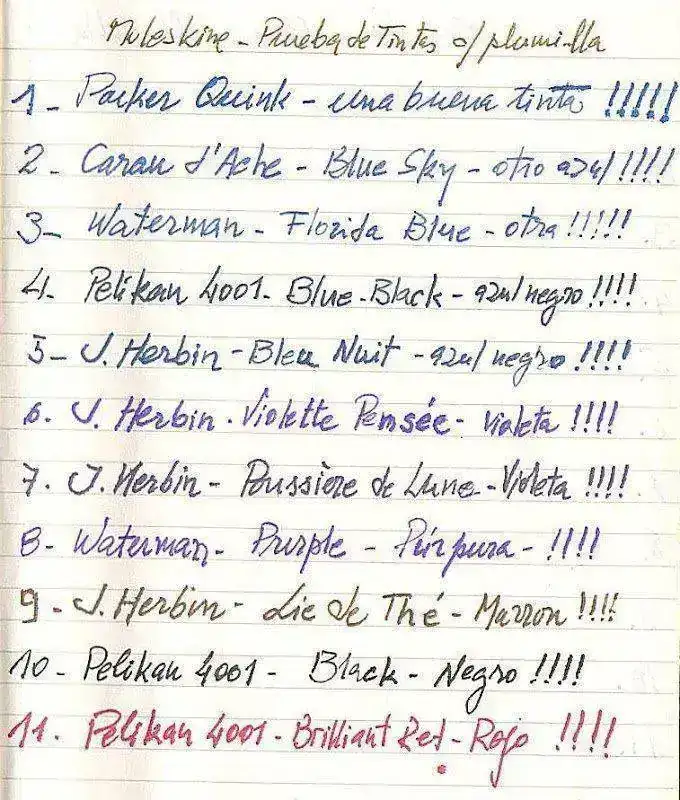 Moleskine - Prueba de Tintas c/ plumilla
1 - Parker Quink - una buena tinta !!!!!
2 - Caran d'Ache - Blue Sky - otro azul !!!!
3 - Waterman - Florida Blue - otra !!!!!
4 - Pelikan 4001 - Blue-Black - azul negro !!!!
5 - J. Herbin - Bleu Nuit - azul negro !!!!
6. J. Herbin - Violette Pensée - violeta !!!!
7. J. Herbin - Poussière de Lune - Violeta !!!!
8 - Waterman - Purple - Púrpura - !!!!
9 - J. Herbin - Lie de Thé - Marron !!!!
10 - Pelikan 4001 - Black - Negro !!!!
11. Pelikan 4001 - Brilliant Red - Rojo !!!!